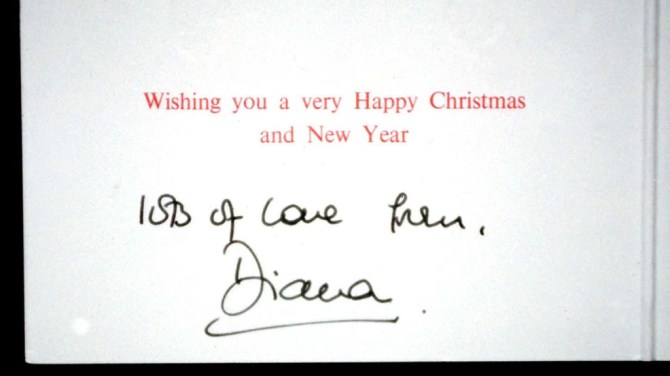 Wishing you a very Happy Christmas
and New Year
lots of love from.
Diana.